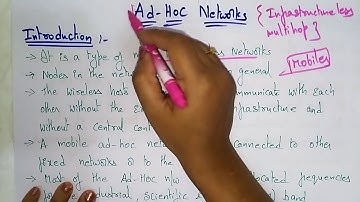 Ad-Hoc Networks { Infrastructureless
multihop }
Introduction :-
→ It is a type of Networks
Mobiles
→ Nodes in the netw general
→ The wireless hosts communicate with each
other without the frastructure and
without a central cont
→ A mobile ad-hoc netw connected to other
fixed networks & to the
→ Most of the Ad-Hoc n/w ocated frequencies
dustrial, Scientific band